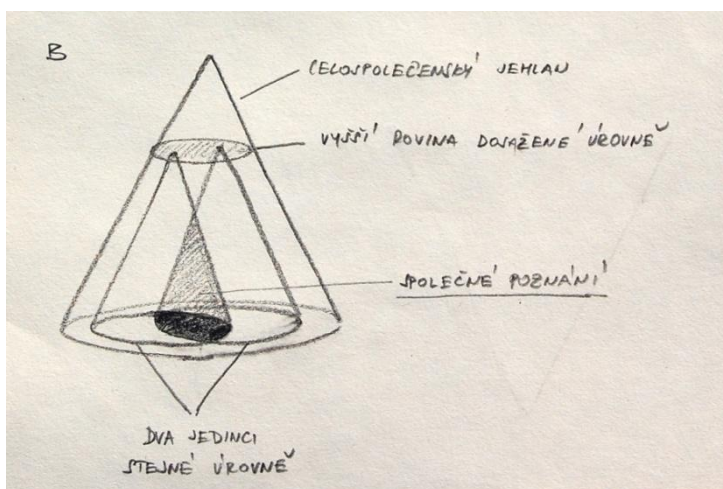 B
CELOSPOLEČENSKÝ JEHLAN
VYŠŠÍ ROVINA DOSAŽENÉ ÚROVNĚ
SPOLEČNÉ POZNÁNÍ
DVA JEDINCI
STEJNÉ ÚROVNĚ